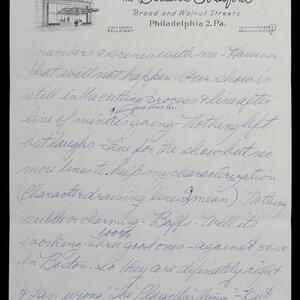 THE Bellevue Stratford
Broad and Walnut Streets
Philadelphia 2, Pa.
CABLE ADDRESS
BELLSTRAT
numbers & scenes with me - However
that will not happen - Our show is
still in the cutting process & line after
line of mine is going - Nothing left
but laughs - fine for the show but no
more lines to help my characterization
(Character drawing lines I mean) Nothing
subtle or charming - Boffs - Well its
working - 100% good ones - against 50-50
in Boston. So they are definately right
& I am wrong "The Play's the Thing" - But